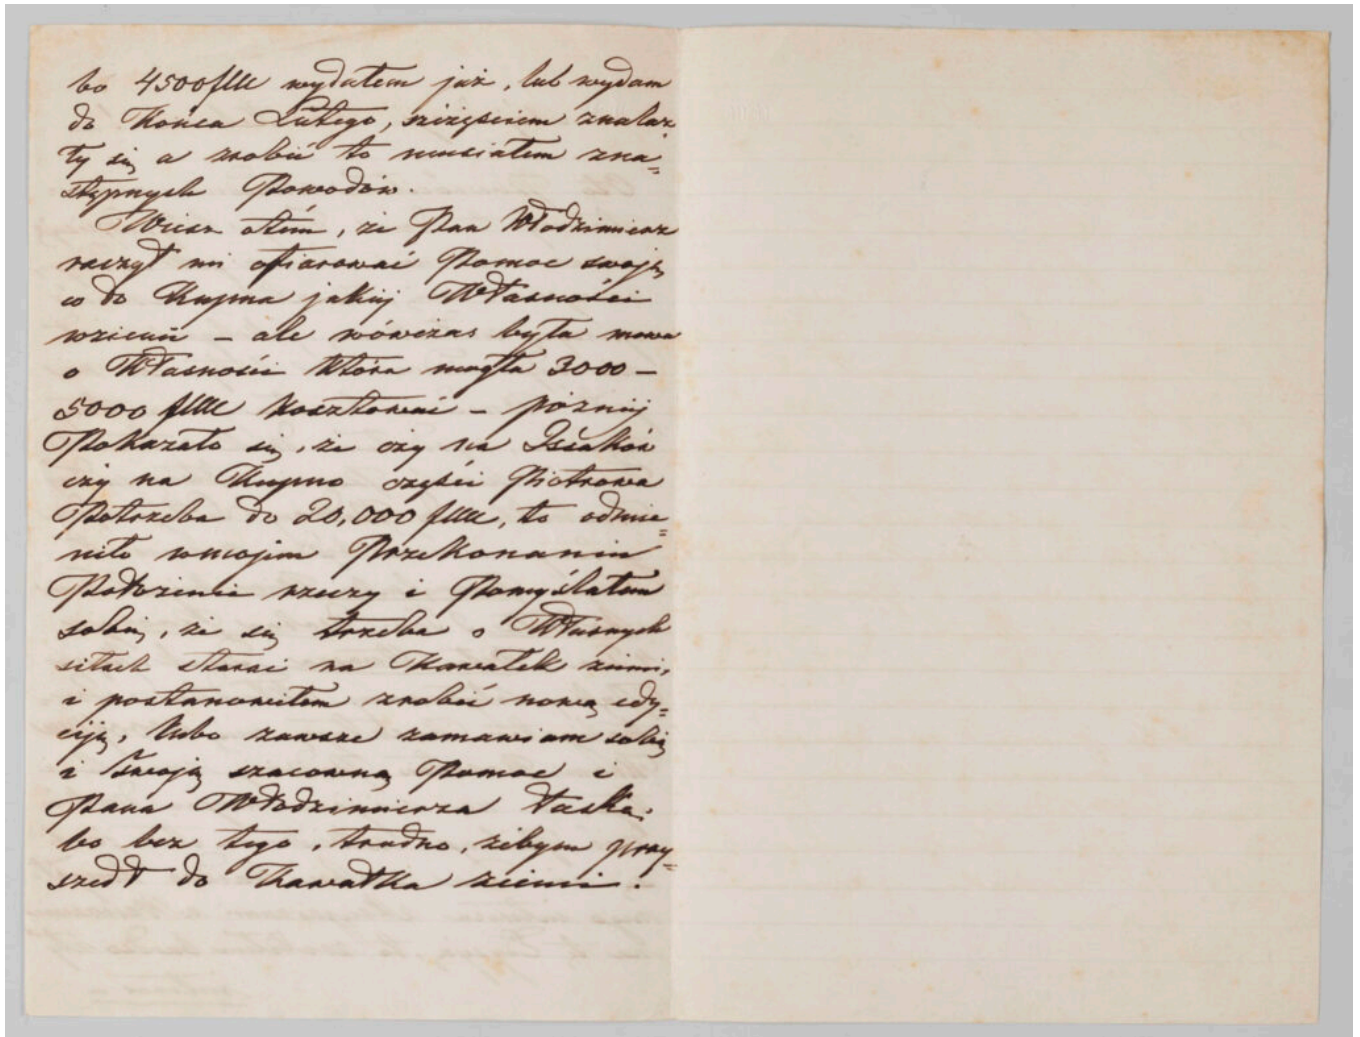 bo 4500 flW wydałem już, lub wydam
do Końca Lutego, szczęściem znalaz
ły się a zrobić to musiałem zna=
stępnych Powodów.
Wiesz otém, że Pan Włodzimierz
raczył mi ofiarować Pomoc swoję
co do Kupna jakiej Własności
wziemi – ale wówczas była mowa
o Własności która mogła 3000 –
5000 flW Kosztować – później
Pokazało się, że czy na Isaków
czy na Kupno części Piotrowa
Potrzeba do 20,000 flW, to odmie=
niło wmojem Przekonaniu
Położenie rzeczy i Pomyślałem
sobie, że się trzeba o Własnych
siłach starać na Kawałek ziemi,
i postanowiłem zrobić nową edy=
ciję, lubo zawsze zamawiam sobie
i Twoję szacowną Pomoc i
Pana Włodzimierza łaskę.
bo bez tego, trudno, żebym przy=
szedł do Kawałka ziemi.